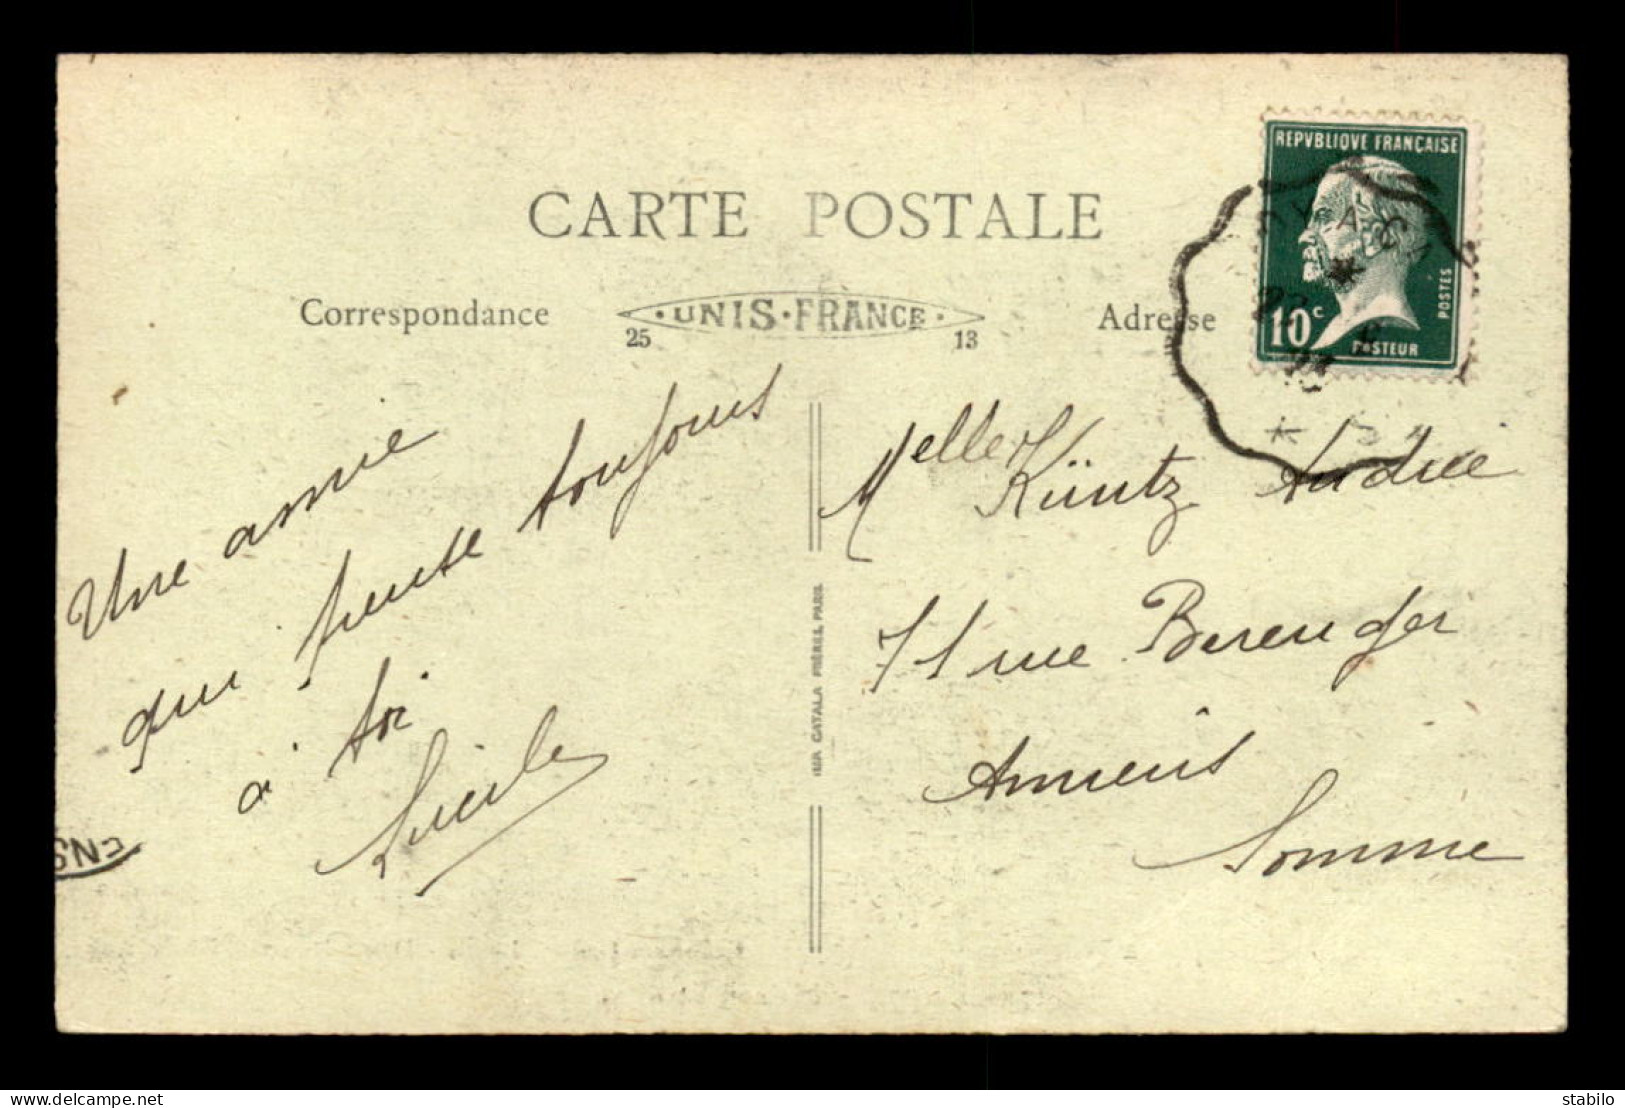 REPVBLIQVE FRANÇAISE
POSTES
10c
PASTEUR
CARTE POSTALE
Correspondance
·UNIS·FRANCE·
25 13
Adresse
Une amie
qui pense toujours
à toi
Lucile
Melle Küntz Andrée
71 rue Berenger
Amiens
Somme
IMP. CATALA FRÈRES, PARIS
ENS
delcampe.net
stabilo